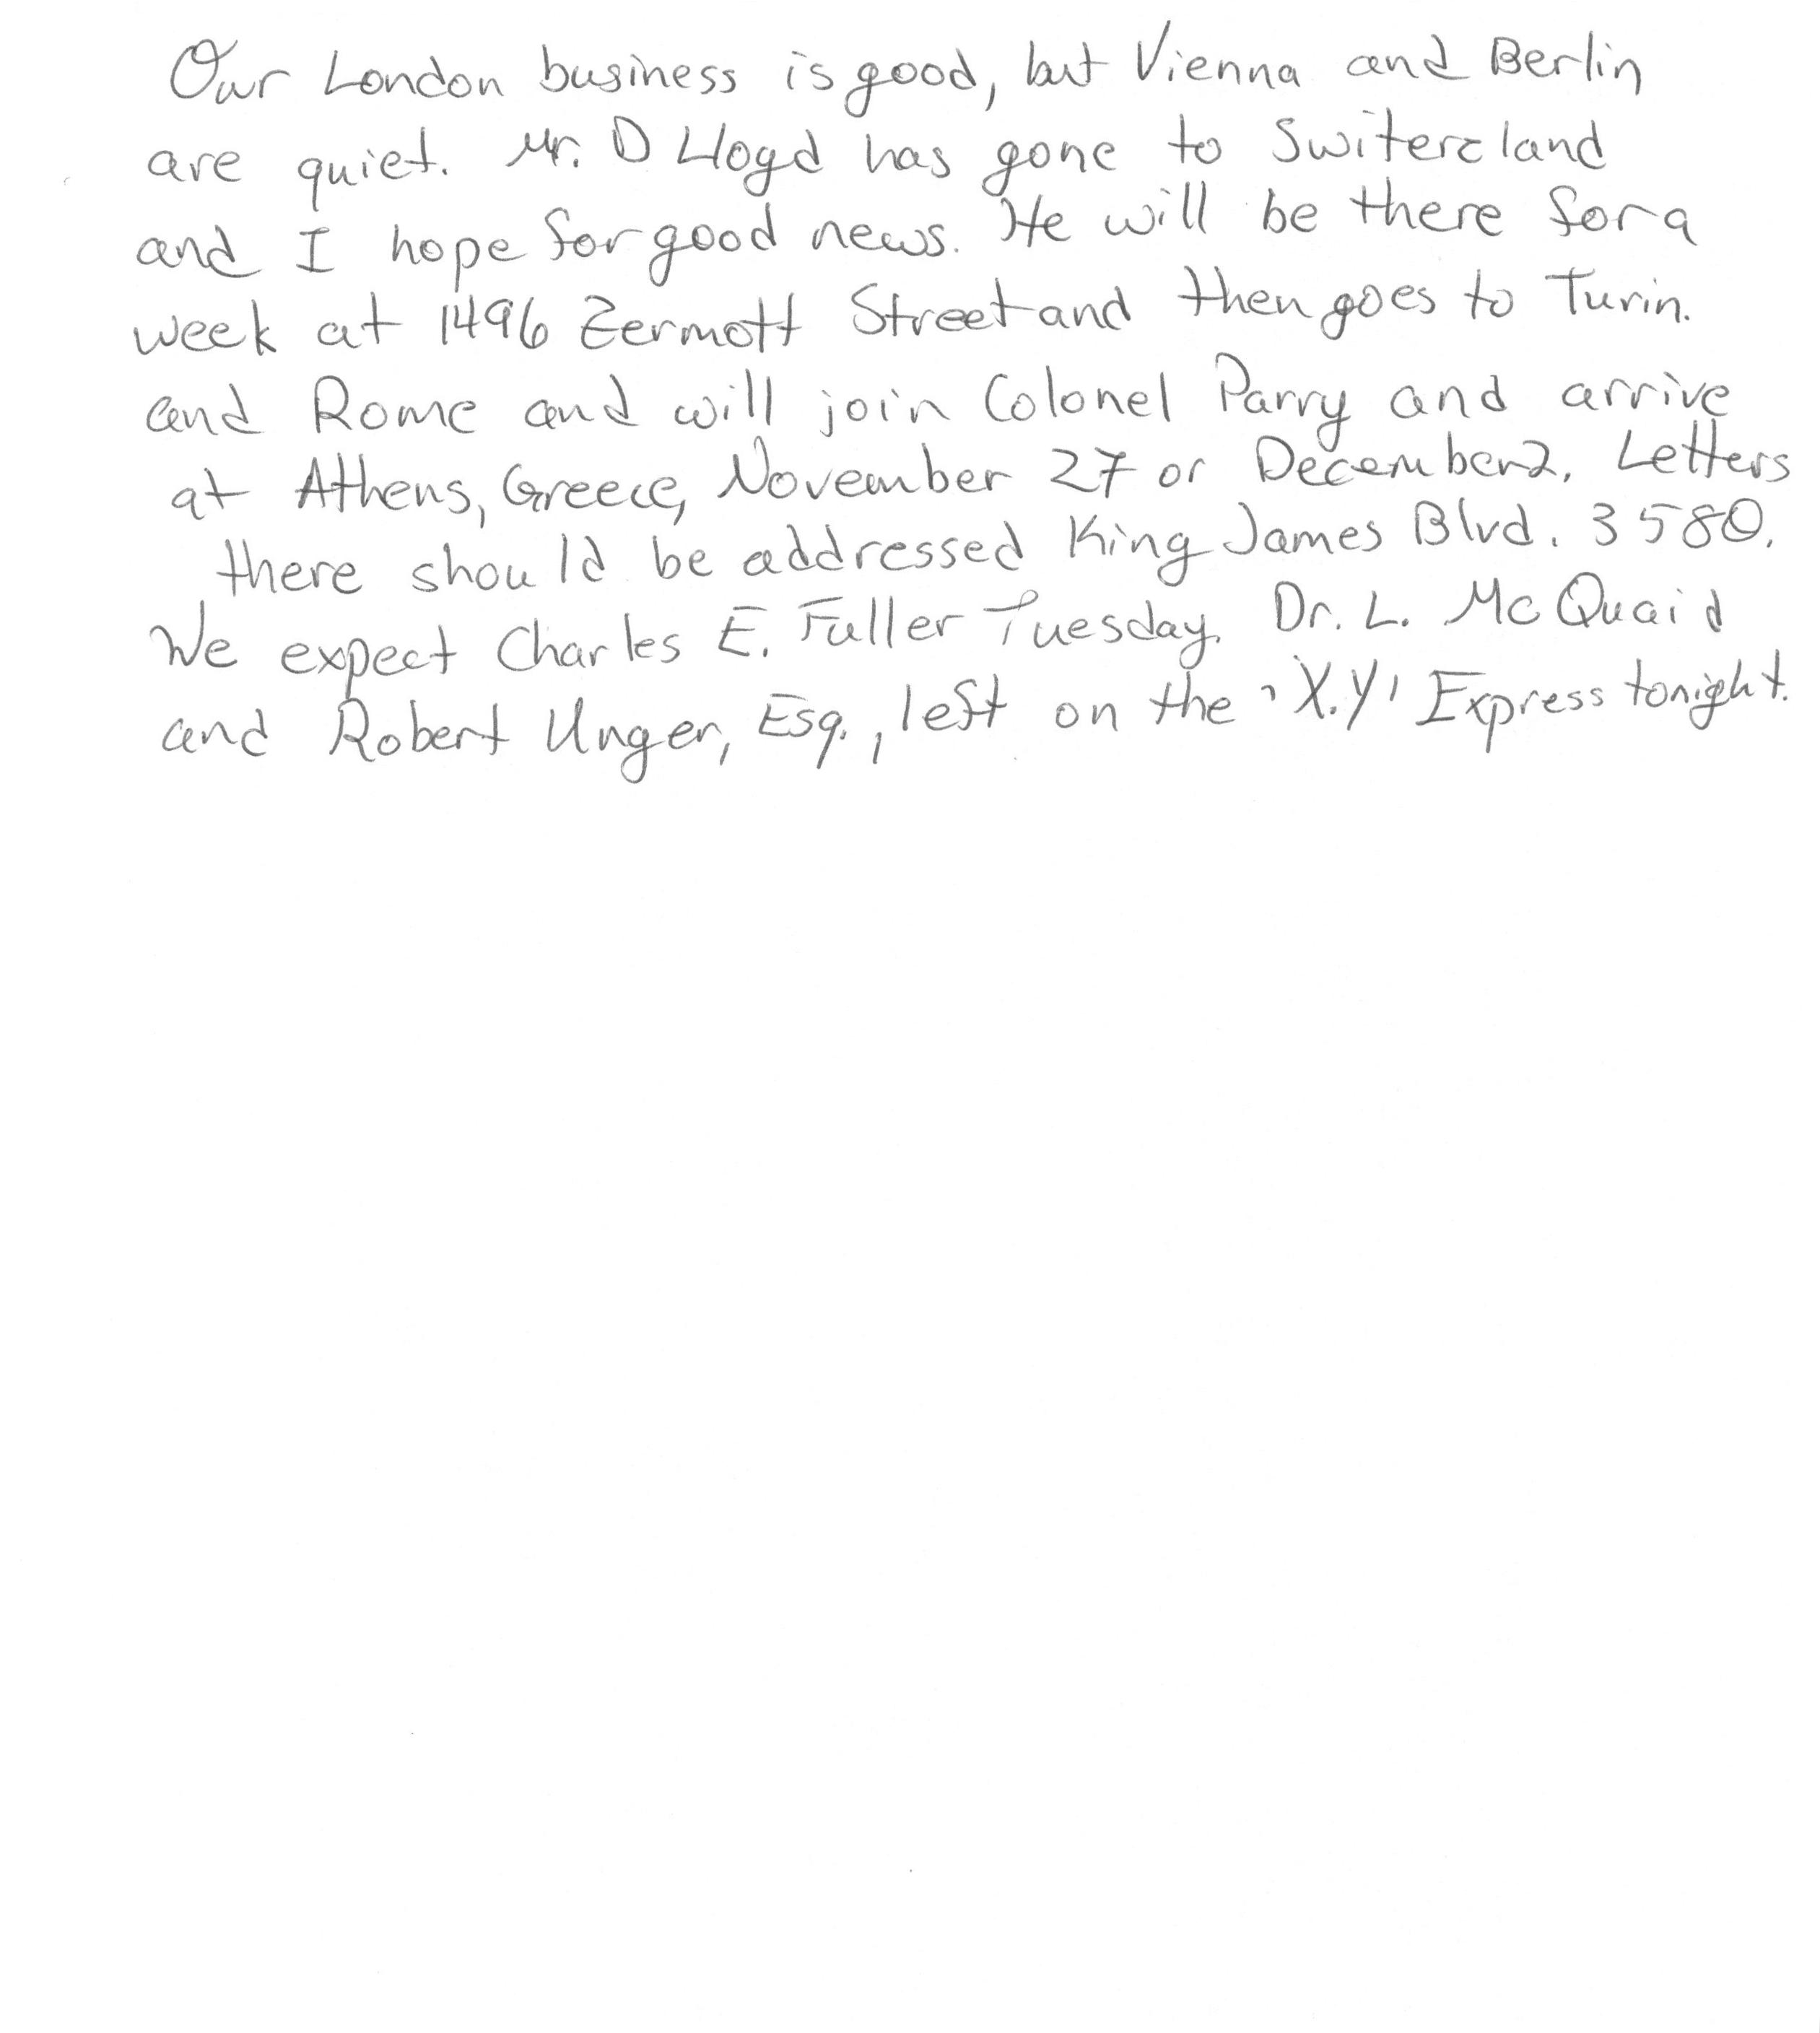 Our London business is good, but Vienna and Berlin
are quiet. Mr. D Lloyd has gone to Switerzland
and I hope for good news. He will be there for a
week at 1496 Zermott Street and then goes to Turin.
and Rome and will join Colonel Parry and arrive
at Athens, Greece, November 27 or December 2. Letters
there should be addressed King James Blvd. 3580.
We expect Charles E. Fuller Tuesday. Dr. L. McQuaid
and Robert Unger, Esq., left on the 'X.Y' Express tonight.